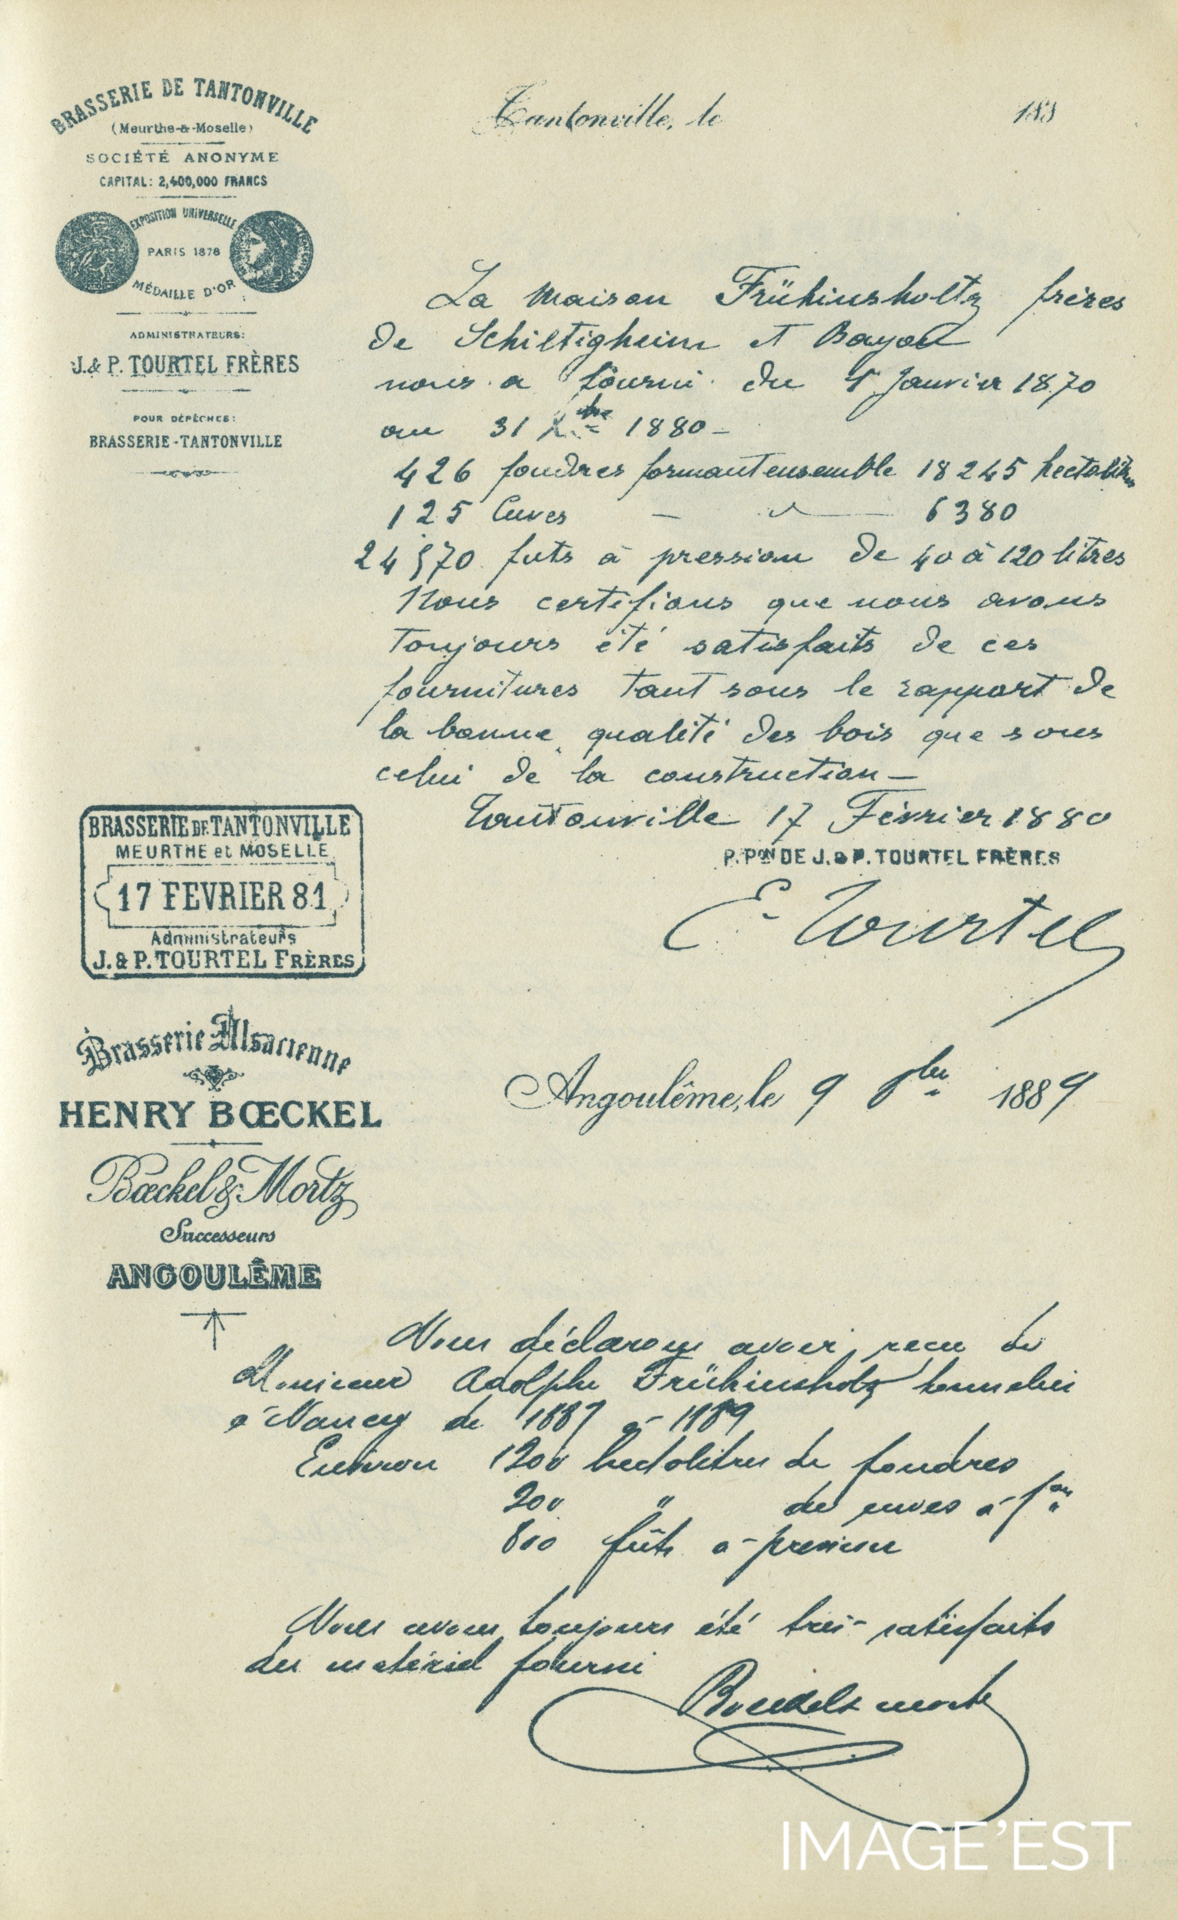 BRASSERIE DE TANTONVILLE
(Meurthe-&-Moselle)
SOCIÉTÉ ANONYME
CAPITAL: 2,400,000 FRANCS
EXPOSITION UNIVERSELLE
PARIS 1878
MÉDAILLE D'OR
ADMINISTRATEURS:
J. & P. TOURTEL FRÈRES
POUR DÉPÊCHES:
BRASSERIE-TANTONVILLE
Tantonville, le 188
La Maison Frühinsholtz frères
de Schiltigheim et Bayon
nous a fourni du 1 Janvier 1870
au 31 Xbre 1880 -
426 foudres formant ensemble 18245 hectolitres
125 Cuves — " — 6380
24570 futs à pression de 40 à 120 litres
Nous certifions que nous avons
toujours été satisfaits de ces
fournitures tant sous le rapport de
la bonne qualité des bois que sous
celui de la construction —
Tantonville 17 Février 1880
P. Pon DE J. & P. TOURTEL FRÈRES
E. Tourtel
BRASSERIE DE TANTONVILLE
MEURTHE et MOSELLE
17 FEVRIER 81
Administrateurs
J. & P. TOURTEL FRÈRES
Brasserie Alsacienne
HENRY BŒCKEL
Bœckel & Mortz
Successeurs
ANGOULÊME
Angoulême, le 9 8bre 1889
Nous déclarons avoir reçu de
Monsieur Adolphe Frühinsholz tonnelier
à Nancy de 1887 à 1889
Environ 1200 hectolitres de foudres
200 " de cuves à fon
800 fûts à pression
Nous avons toujours été très satisfaits
du matériel fourni
Bœckel & Mortz
IMAGE'EST